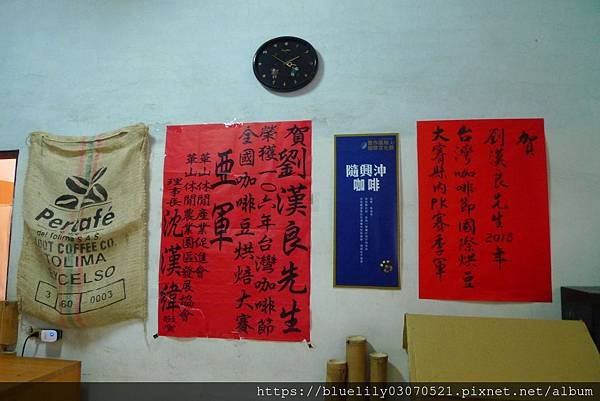 Percafé
del tolima S.A.S
ROOT COFFEE CO.
TOLIMA
EXCELSO
3 60 0003
賀劉漢良先生
榮獲一〇六年台灣咖啡節
全國咖啡豆烘焙大賽
亞軍
華山休閒產業促進會
華山休閒農業園區發展協會
理事長 沈漢緯 敬賀
隨興沖
咖啡
賀
劉漢良先生2018年
台灣咖啡節國際烘豆
大賽縣內PK賽季軍
https://bluelily03070521.pixnet.net/album